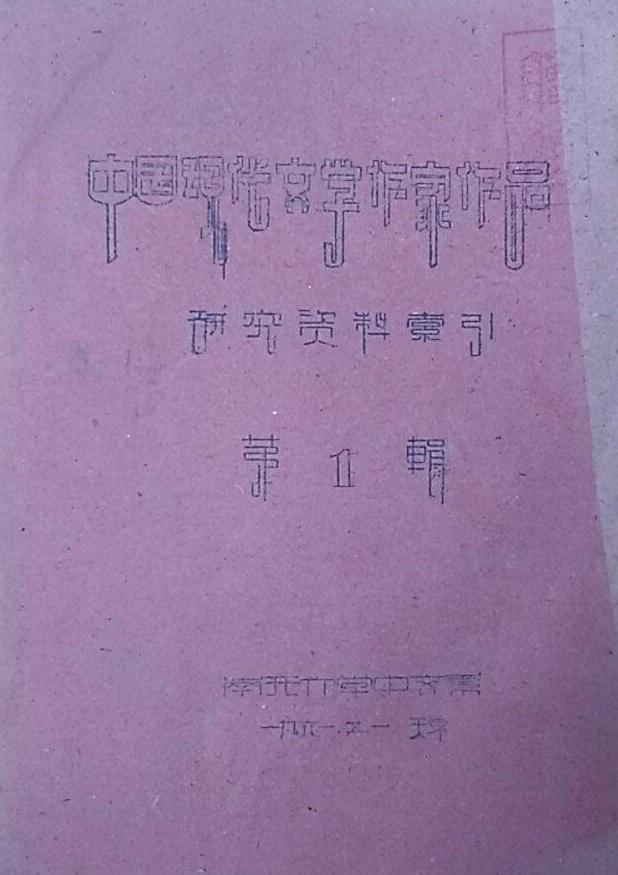 中国现代文学作家作品
研究资料索引
第1輯
南开大学中文系
一九六一.五.一 天津